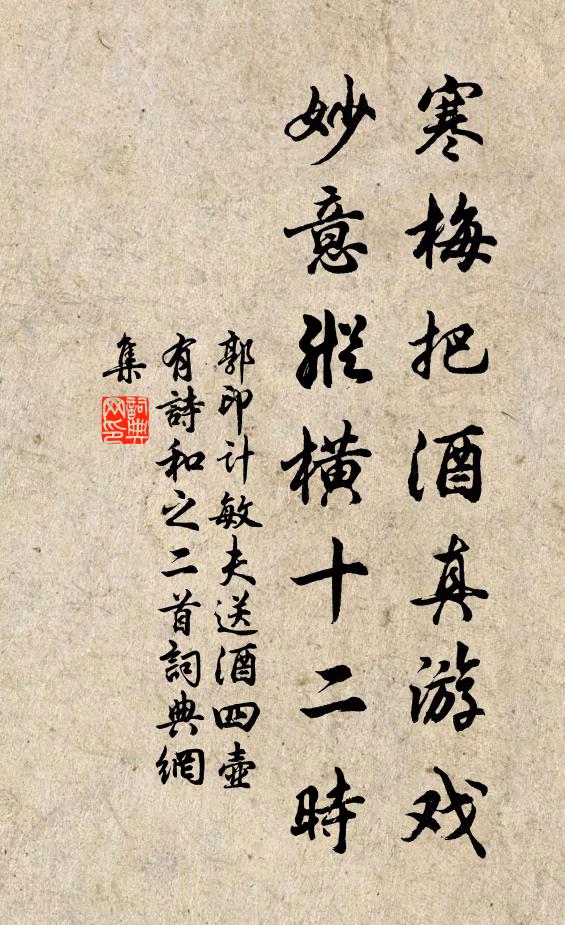 寒梅把酒真游戏
妙意縱橫十二時
郭印计敏夫送酒四壺
有詩和之二首詞典網
集
詞典
网印